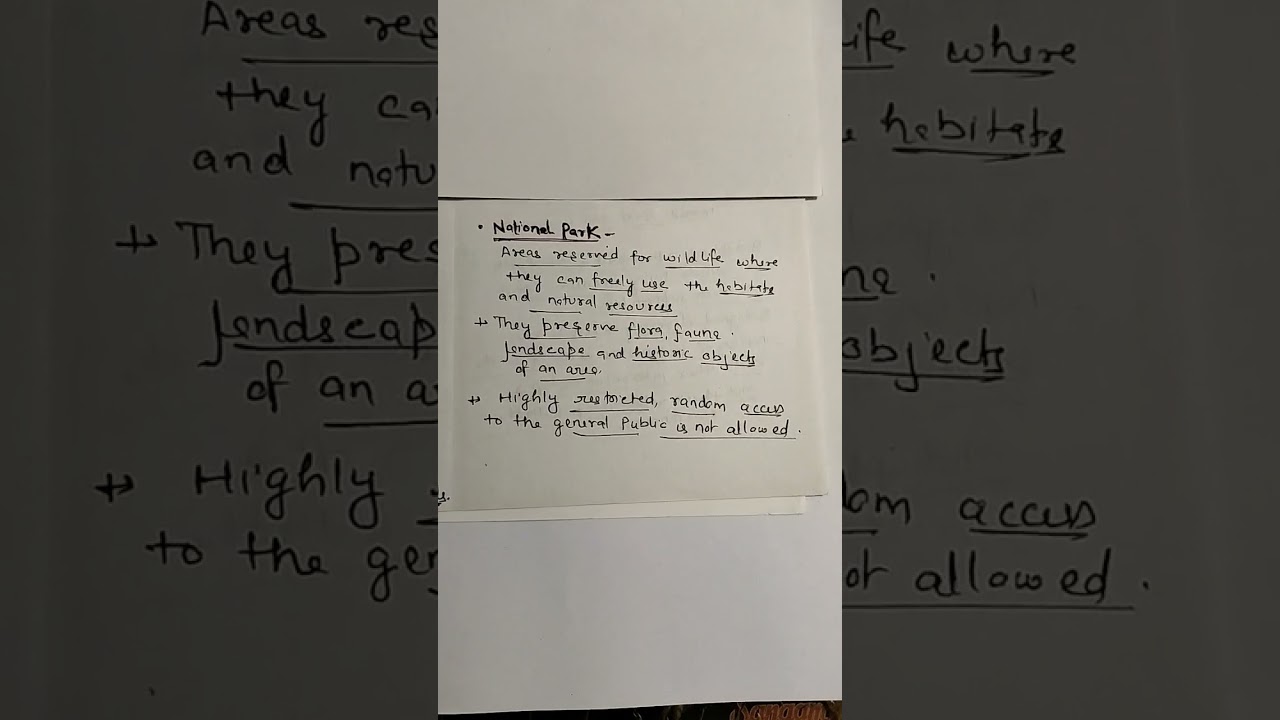 • National Park –
Areas reserved for wildlife where
they can freely use the habitats
and natural resources
→ They preserve flora, fauna.
landscape and historic objects
of an area.
→ Highly restricted, random access
to the general Public is not allowed.